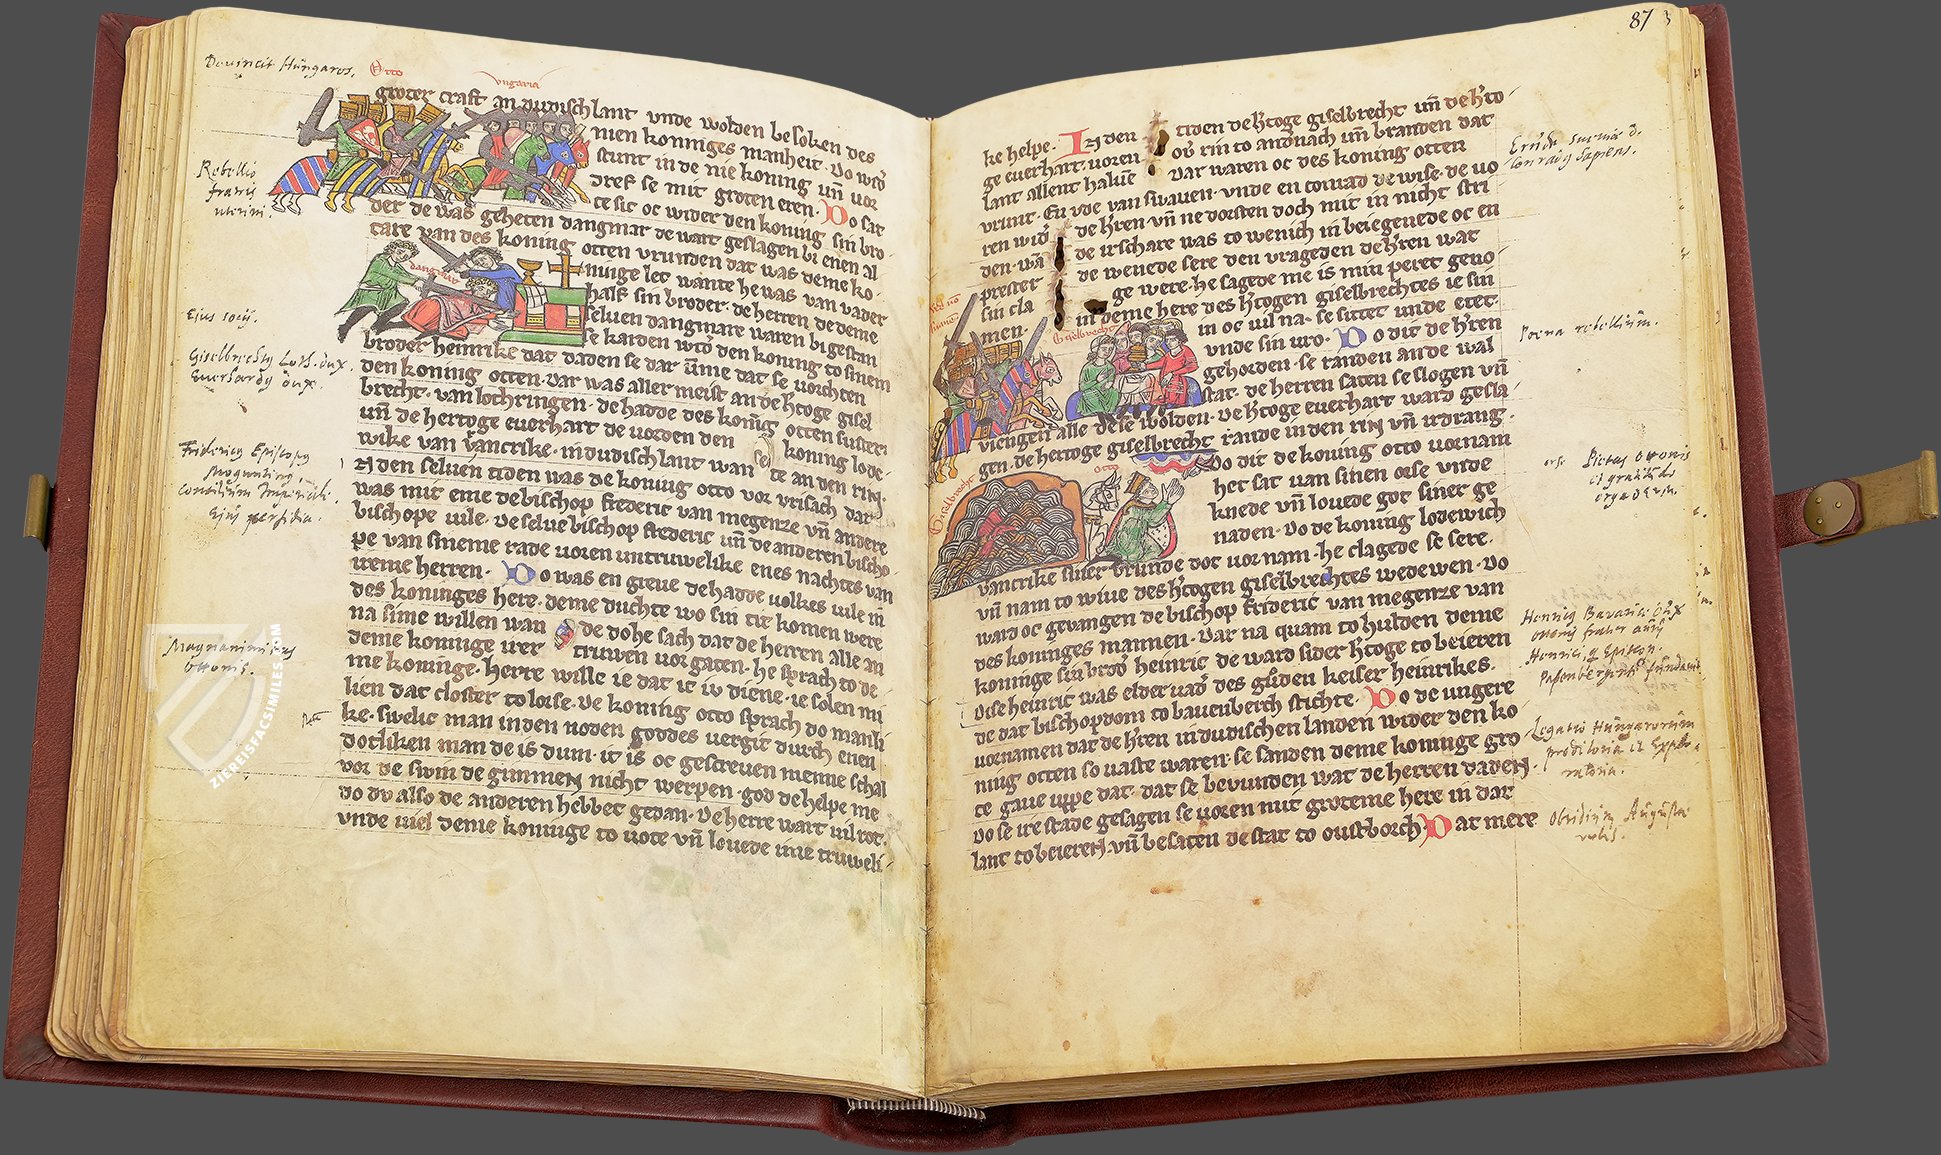 Deuincit Hungaros.
Otto
vngaria
groter craft an dudischlant vnde wolden besoken des
nien koninges manheit. Do ward
Rebellio
fratris
uterini.
stunt in de nie koning vn̄ vor
dref se mit groten eren. Do sat
te sic oc wider den koning sin bro
der de was geheten dangmar de wart geslagen bi enen al
tare van des koning otten vrunden dat was deme ko
dangmar
ninge let wante he was van vader
half sin broder. de herren de deme
Eius socij.
seluen dangmare waren bigestan
se karden wid' den koning to sinem
Giselbrechtg Loth. dux.
Euerhardg dux.
broder heinrike dat daden se dar ūme dat se vorchten
den koning otten. Dar was aller meist an de h'toge gisel
brecht. van lochringen. de hadde des koning otten suster
vn̄ de hertoge euerhart de vorden den koning lode
wike van vrancrike. in dudischlant wan se te an den rin.
Fridericg Episcopg
Mogunting,
concilium Imperiale.
Eius perfidia.
In den seluen tiden was de koning otto vor brisach dar
was mit eme de bischop frederic van megenze vn̄ andere
bischope vile. De selue bischop frederic vn̄ de anderen bischo
pe van sineme rade voren untruwelike enes nachtes van
ireme herren. Do was en greue de hadde volkes vile in
des koninges here. deme duchte wo sin tit komen were
na sime willen wan de do he sach dat de herren alle an
Magnanimitas
Ottonis.
deme koninge irer truwen vorgaten. he sprach to de
me koninge. herre wille ie dat ic iv diene. ie solen mi
lien dat closter to loise. De koning otto sprach do manli
ke. swelic man in den noden goddes vergit durch enen
dotliken man de is dum. it is oc gescreuen menne schal
vor de swin de gimmen nicht werpen. god de helpe me
do du also de anderen hebbet gedan. De herre wart vil rot.
vnde viel deme koninge to vote vn̄ louede ime truweli
ZIEREISFACSIMILES.COM
87
ke helpe. In den tiden de h'toge giselbrecht vn̄ de h'to
ge euerhart. voren ou' rin to andernach vn̄ branden dat
lant allent halue. Dar waren oc des koning otten
vrunt. En vde van swauen. vnde en conrad de wise. de vo
conradg sapiens.
ren wid' de h'ren vn̄ ne dorsten doch mit in nicht stri
den. wā de irschare was to wenich in beiegenede oc en
prester de weuede sere den vrageden de h'ren wat
sin cla ge were. he sagede me is min peret geno
men. in deme here des h'togen giselbrechtes ie sin
Giselbrecht
in oc vil na. se sittet unde etet.
vnde sin vro. Do dit de h'ren
Poena rebellium.
gehorden. se randen an de wal
stat. de herren saten se slogen vn̄
viengen alle dese wolden. De h'toge euerhart ward gesla
gen. de hertoge giselbrecht rande in den rin vn̄ irdrang.
Giselbrecht
otto
Do dit de koning otto vornam
Pietas Ottonis
et gratitudo
erga Deum.
he sat van sinen orse vnde
knede vn̄ louede got siner ge
naden. Do de koning lodewich
van vrancrike siner vrunde dot vornam. he clagede se sere.
vn̄ nam to wiue des h'togen giselbrechtes wedewen. Do
ward oc gevangen de bischop frideric van megenze van
des koninges mannen. Dar na quam to hulden deme
koninge sin brod' heinric de ward sider h'toge to beieren
Henricg Bavariae dux
Ottonis frater
Henrici Episcop.
dise heinric was elder uad' des guden keiser heinrikes.
de dat bischopdom to bauenberch stichte. Do de ungere
vornamen dat de h'ren in dudischen landen wider den ko
Legatio Hungarorum
proditoria et Explo-
ratoria.
ning otten so vaste waren. se sanden deme koninge gro
te gaue vppe dat. dat se bevunden wat de herren daden.
do se ire stade gesagen se voren mit groteme here in dat
lant to beieren. vn̄ besaten de stat to oustborch. Dat mere
Obsidium Augustae